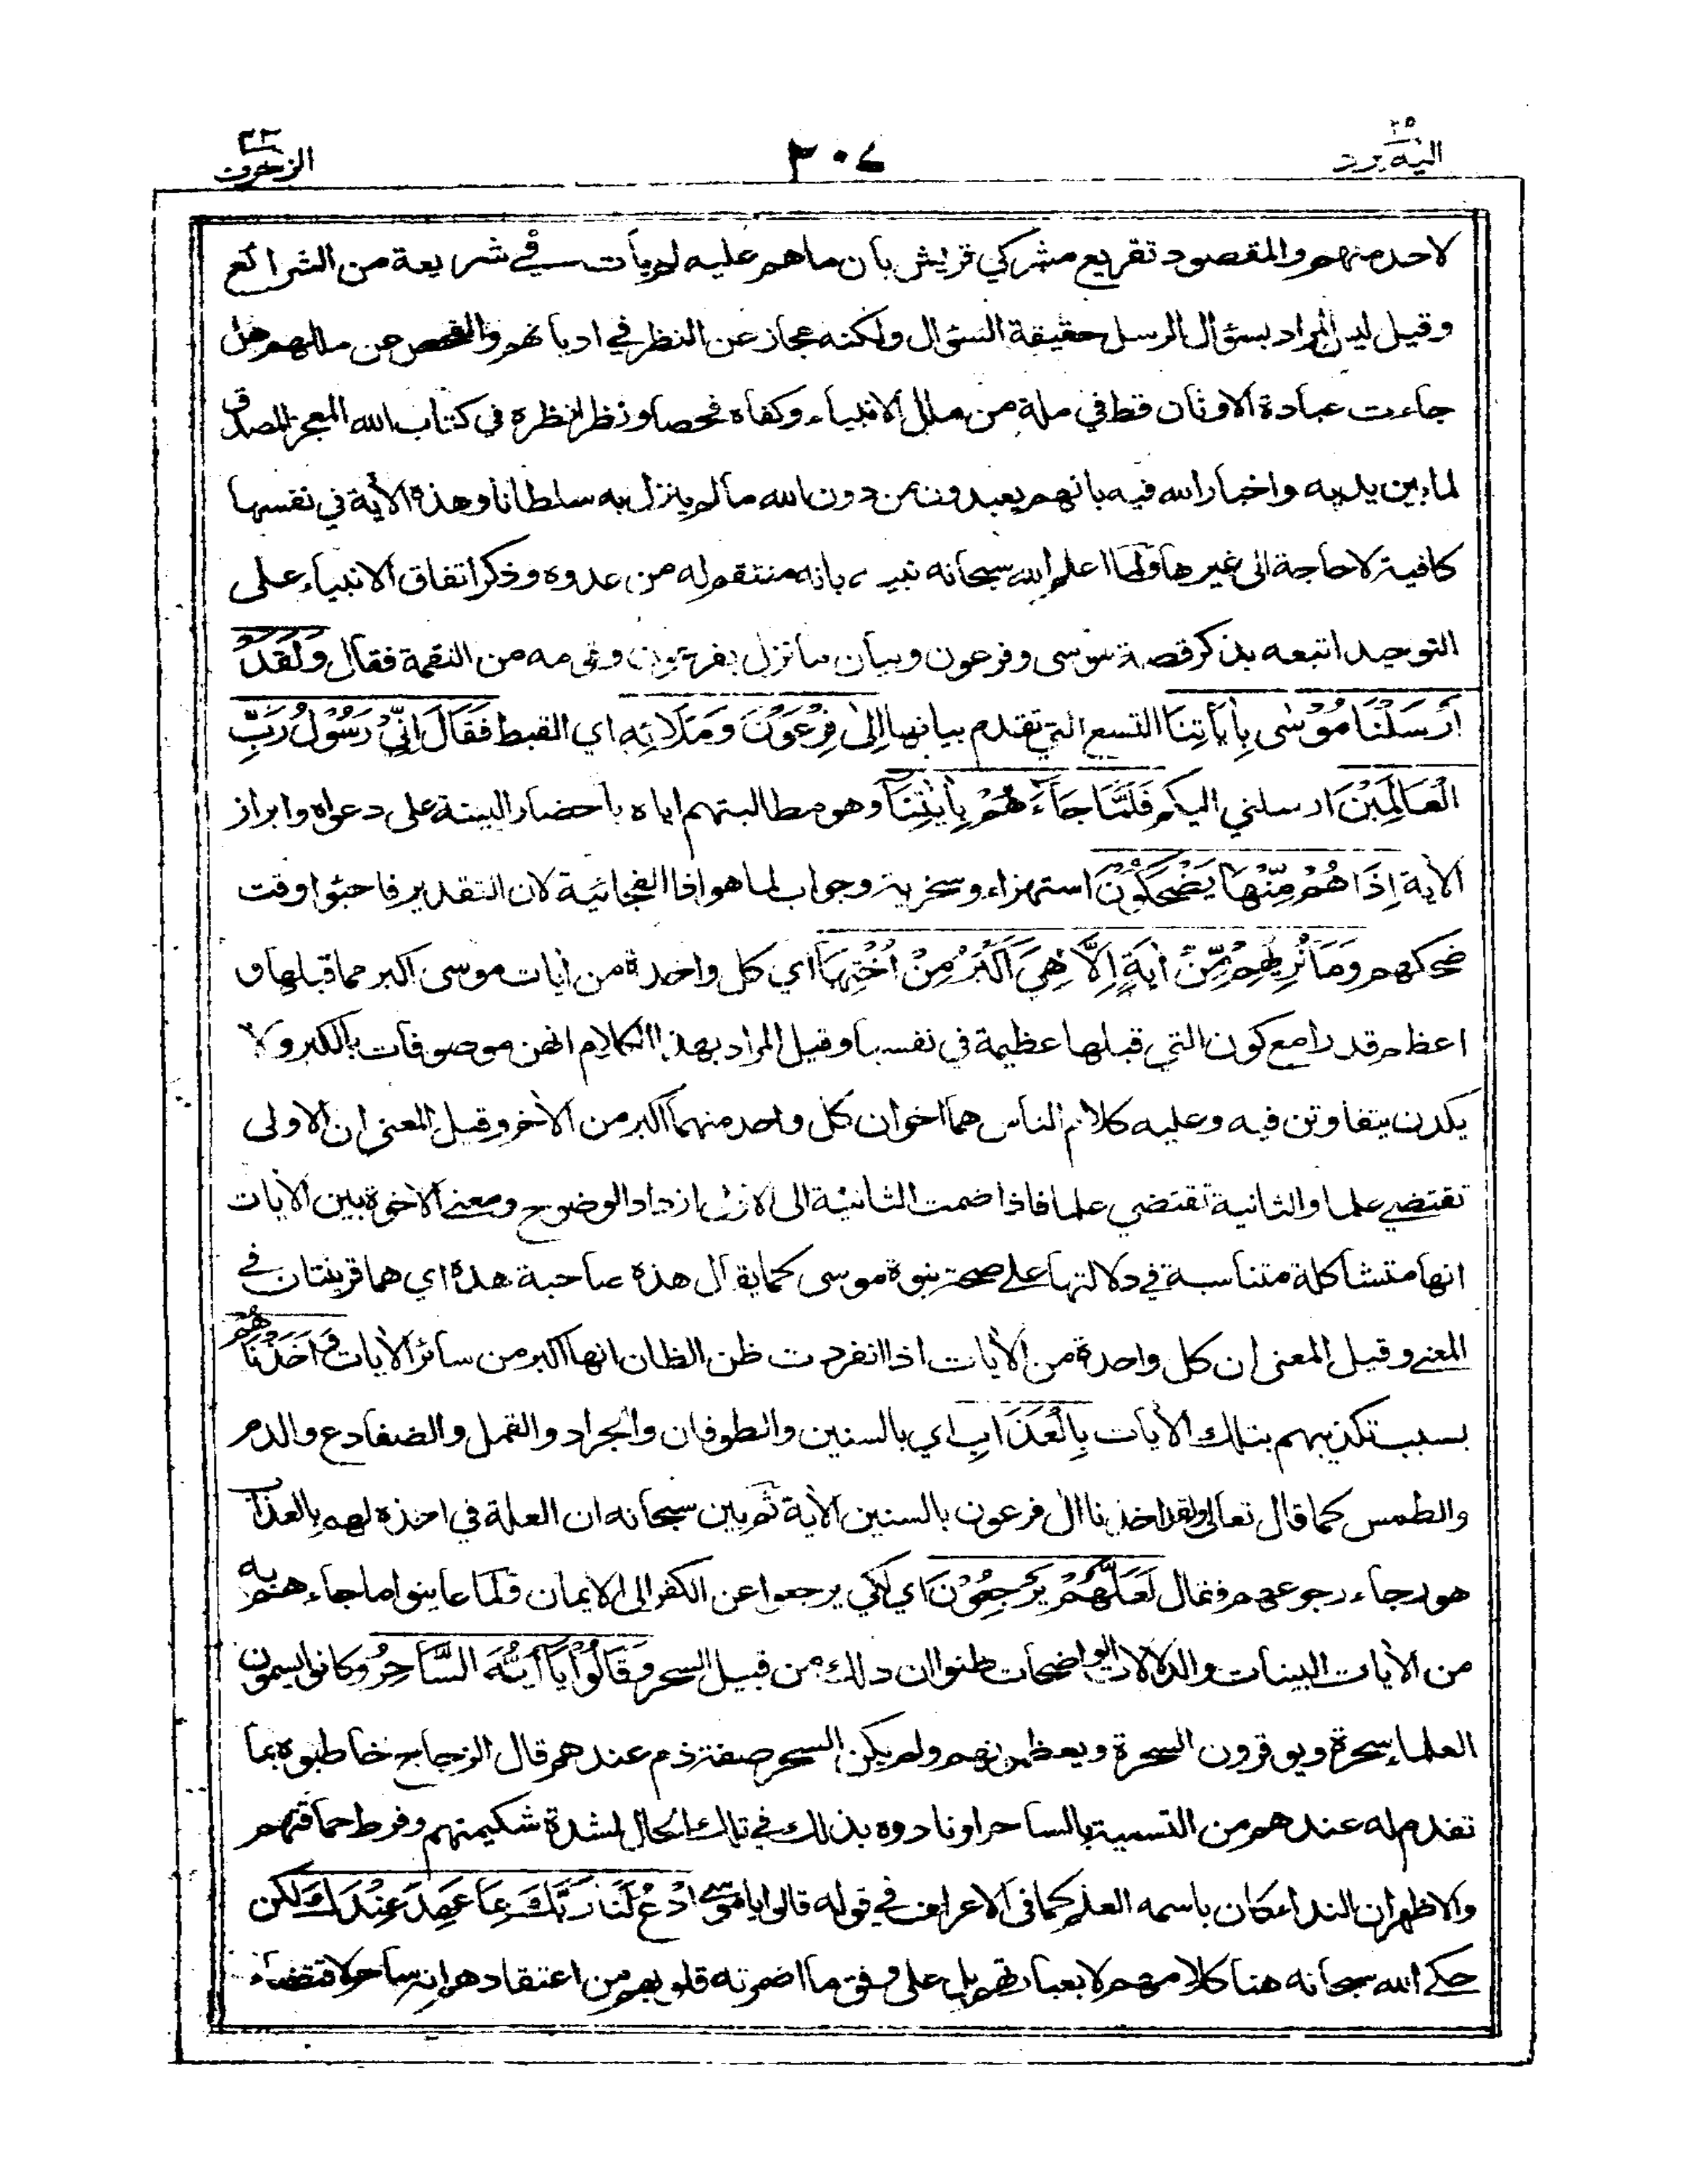 اليه يرد ٢٥
٣٠٧
الزخرف ٤٣
لاحد منهم والمقصود تقريع مشركي قريش بأن ما هم عليه لم يأت في شريعة من الشرائع
وقيل ليس المراد بسؤال الرسل حقيقة السؤال ولكنه مجاز عن النظر في اديانهم والفحص عن مللهم هل
جاءت عبادة الاوثان قط في ملة من ملل الانبياء وكفاه فحصا ونظرا نظره في كتاب الله المعجز المصدق
لما بين يديه واخبار الله فيه بانهم يعبدون من دون الله ما لم ينزل به سلطانا وهذه الأية في نفسها
كافية لا حاجة الى غيرها ولما اعلم الله سبحانه نبيه بانه منتقم له من عدوه وذكر اتفاق الانبياء على
التوحيد اتبعه بذكر قصة موسى وفرعون وبيان ما نزل بفرعون وقومه من النقمة فقال وَلَقَدْ
أَرْسَلْنَا مُوْسٰى بِأٰيَاتِنَا التسع التي تقدم بيانها اِلٰى فِرْعَوْنَ وَمَلَائِهٖ اي القبط فَقَالَ اِنِّيْ رَسُوْلُ رَبِّ
الْعَالَمِيْنَ ارسلني اليكم فَلَمَّا جَاءَهُمْ بِأٰيٰتِنَا وهو مطالبتهم اياه باحضار البينة على دعواه وابراز
الأية اِذَا هُمْ مِّنْهَا يَضْحَكُوْنَ استهزاء وسخرية وجواب لما هو اذا الفجائية لان التقدير فاجئوا وقت
ضحكهم وَمَا نُرِيْهِمْ مِّنْ أٰيَةٍ اِلَّا هِيَ اَكْبَرُ مِنْ اُخْتِهَا اي كل واحدة من أيات موسى اكبر مما قبلها و
اعظم قدرا مع كون التي قبلها عظيمة في نفسها وقيل المراد بهذا الكلام انهن موصوفات بالكبر ولا
يكدن يتفاوتن فيه وعليه كلام الناس هما اخوان كل واحد منهما اكبر من الأخر وقيل المعنى ان الاولى
تقتضي علما والثانية تقتضي علما فاذا ضمت الثانية الى الاولى ازداد الوضوح ومعنى الاخوة بين الأيات
انها متشاكلة متناسبة في دلالتها على صحة نبوة موسى كما يقال هذه صاحبة هذه اي هما قرينتان في
المعنى وقيل المعنى ان كل واحدة من الأيات اذا انفردت ظن الظان انها اكبر من سائر الأيات وَاَخَذْنَاهُمْ
بسبب تكذيبهم بتلك الأيات بِالْعَذَابِ اي بالسنين والطوفان والجراد والقمل والضفادع والدم
والطمس كما قال تعالى ولقد اخذنا ال فرعون بالسنين الأية ثم بين سبحانه ان العلة في اخذه لهم بالعذاب
هو رجاء رجوعهم فقال لَعَلَّهُمْ يَرْجِعُوْنَ اي لكي يرجعوا عن الكفر الى الايمان فلما عاينوا ما جاءهم به
من الأيات البينات والدلالات الواضحات ظنوا ان ذلك من قبيل السحر وَقَالُوْا يَا اَيُّهَ السَّاحِرُ وكانوا يسمون
العلماء سحرة ويوقرون السحرة ويعظمونهم ولم يكن السحر صفة ذم عندهم قال الزجاج خاطبوه بما
تقدم له عندهم من التسمية بالساحر او نادوه بذلك في تلك الحال لشدة شكيمتهم وفرط حماقتهم
والاظهر ان النداء كان باسمه العلم كما في الاعراف في قوله قالوا يا موسى ادْعُ لَنَا رَبَّكَ بِمَا عَهِدَ عِنْدَكَ ولكن
حكى الله سبحانه هنا كلامهم لا بعبارتهم بل على وفق ما اضمرته قلوبهم من اعتقادهم انه ساحر لاقتضاء